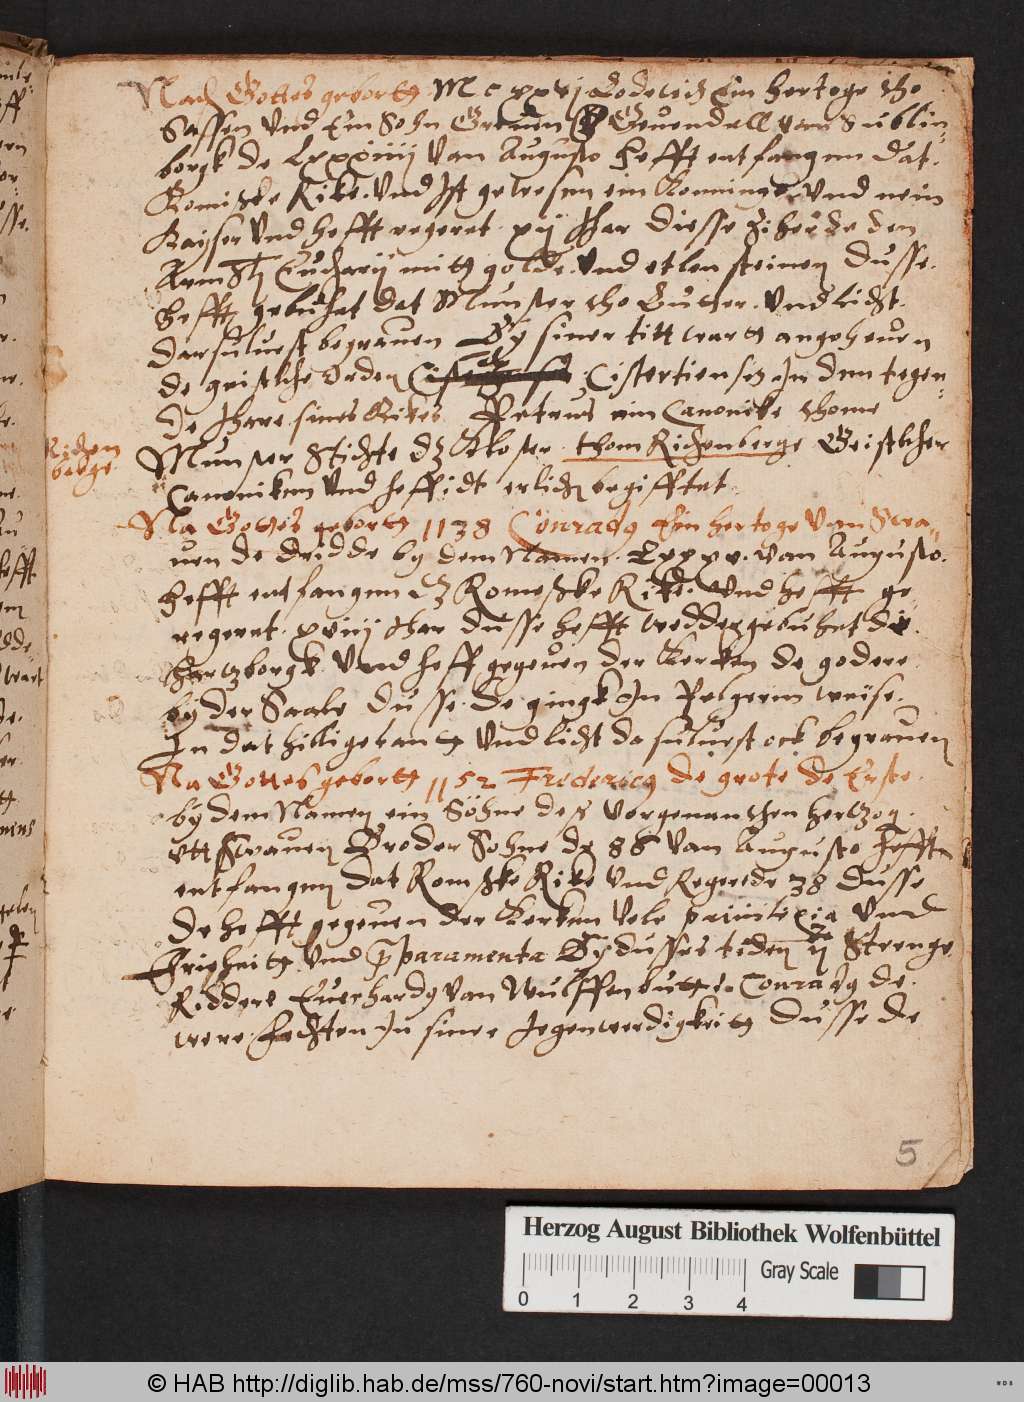 Nach Gottes gebortt Mcxxvj Lodewich Ein hertoge tho
Sassen Vnd Ein Sohn Greuen Geuendall van Sublin-
borgk de Lxxxiiij Van Augusto hefft entfangenn dat
Romiske Rike. Vnd Ist gewesenn ein Konningk. Vnd nein
Kayser Vnd hefft regeret xij Jhar Diesse Ziherde den
Arm Sti Eucharij mitt golde. Vnd etlen steinen Dusse
hefft gebuhet dat Munster tho Lutter. Vnd licht
darsuluest begrauen By siner titt wartt angeheuen
de geistliche Orden Cistertiensers In dem tegen-
de Jhare sines Rikes Petrus ein Canoncke thome
Richen
berge
Munster Stichte dz Kloster thom Richenberge Geistlicher
Canoniken Vnd heffidt erlich begifftet
Na Gottes gebortt 1138 Conradus Ein hertoge Van Swa-
uen de dridde by dem Namen. Lxxxv. van Augusto.
hefft entfangenn dz Romeske Rike. Vnd hefft ge-
regeret xviij Jhar Dusse hefft wedder gebuhet die
Hartzborgk Vnd heff gegeuen der Kerken de godere
by der Saale Dusse. De gingk In Pelgerim weise
In dat hillige lantt Vnd licht dasuluest ock begrauen
Na Gottes gebortt 1152 Fredericus de grote de Erste
by dem Namen ein Söhne des vorgenanthen hertzog
vtt Swauen Broder Sohne de 86 Van Augusto Hefft
entfangenn Dat Romske Rike Vnd Regerede 38 Dusse
De hefft gegeuen der Kerken Vele priuilegia Vnd
Frigheitt Vnd paramenta By dusses tiden ij Strenge
Riddere Euerhardus van Wulffenbuttel. Conradus de
were fechten In siner Jegenwerdigkeitt Dusse de
5
Herzog August Bibliothek Wolfenbüttel
Gray Scale
0 1 2 3 4
© HAB http://diglib.hab.de/mss/760-novi/start.htm?image=00013